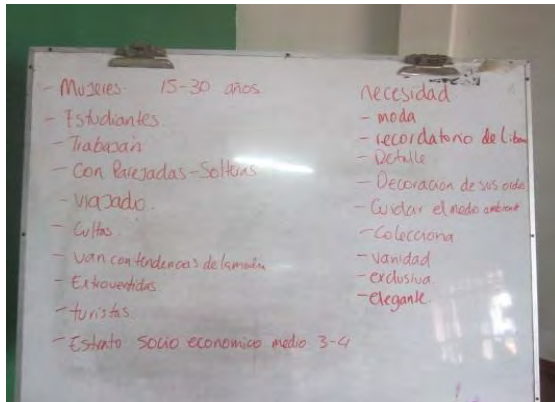 - Mujeres 15-30 años
- Estudiantes.
- Trabajan
- Con Parejadas - Solteras
- viajado.
- Cultas.
- van con tendencias de la moda
- Extrovertidas
- turistas
- Estrato socio economico medio 3-4
necesidad
- moda
- recordatorio de
- Detalle
- Decoracion de sus
- Cuidar el medio ambient
- Colecciona
- vanidad
- exclusiva.
- elegante.